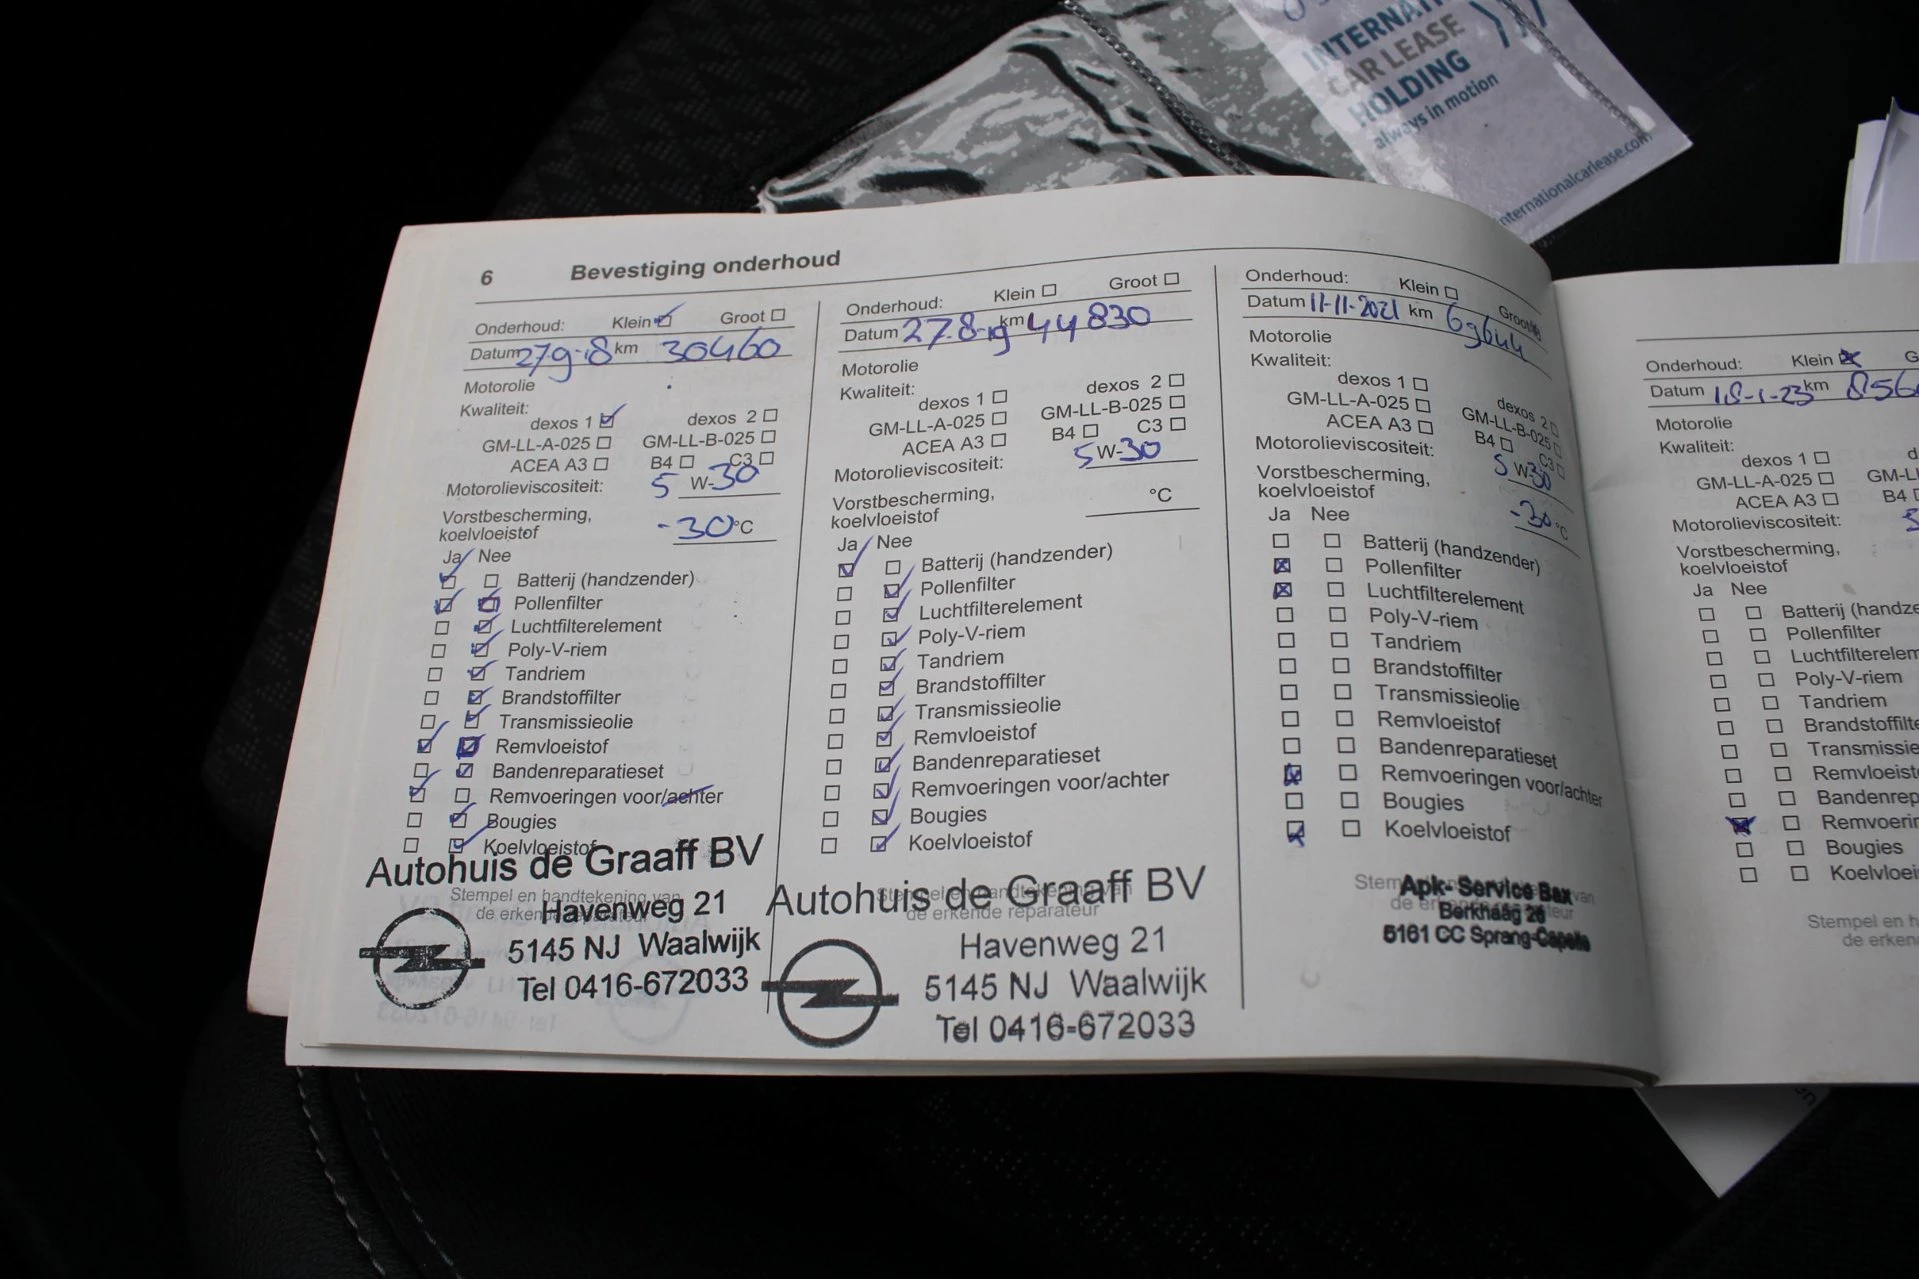 INTERNATI
CAR LEASE
HOLDING
always in motion
nternationalcarlease.com
6 Bevestiging onderhoud
Onderhoud: Klein Groot
Datum 27-9-18 km 30460
Motorolie
Kwaliteit:
dexos 1 dexos 2
GM-LL-A-025 GM-LL-B-025
ACEA A3 B4 C3
Motorolieviscositeit: 5 W-30
Vorstbescherming,
koelvloeistof -30 °C
Ja Nee
Batterij (handzender)
Pollenfilter
Luchtfilterelement
Poly-V-riem
Tandriem
Brandstoffilter
Transmissieolie
Remvloeistof
Bandenreparatieset
Remvoeringen voor/achter
Bougies
Koelvloeistof
Stempel en handtekening van
de erkende reparateur
Autohuis de Graaff BV
Havenweg 21
5145 NJ Waalwijk
Tel 0416-672033
Onderhoud: Klein Groot
Datum 27-8-19 km 44830
Motorolie
Kwaliteit:
dexos 1 dexos 2
GM-LL-A-025 GM-LL-B-025
ACEA A3 B4 C3
Motorolieviscositeit: 5 W-30
Vorstbescherming,
koelvloeistof °C
Ja Nee
Batterij (handzender)
Pollenfilter
Luchtfilterelement
Poly-V-riem
Tandriem
Brandstoffilter
Transmissieolie
Remvloeistof
Bandenreparatieset
Remvoeringen voor/achter
Bougies
Koelvloeistof
Stempel en handtekening van
de erkende reparateur
Autohuis de Graaff BV
Havenweg 21
5145 NJ Waalwijk
Tel 0416-672033
Onderhoud: Klein Groot
Datum 11-11-2021 km 69644
Motorolie
Kwaliteit:
dexos 1 dexos 2
GM-LL-A-025 GM-LL-B-025
ACEA A3 B4 C3
Motorolieviscositeit: 5 W30
Vorstbescherming,
koelvloeistof -30 °C
Ja Nee
Batterij (handzender)
Pollenfilter
Luchtfilterelement
Poly-V-riem
Tandriem
Brandstoffilter
Transmissieolie
Remvloeistof
Bandenreparatieset
Remvoeringen voor/achter
Bougies
Koelvloeistof
Apk- Service Bax
Berkhaag 26
5161 CC Sprang-Capelle
Onderhoud: Klein G
Datum 18-1-23 km 856
Motorolie
Kwaliteit:
dexos 1 d
GM-LL-A-025 GM-LL
ACEA A3 B4
Motorolieviscositeit: 5
Vorstbescherming,
koelvloeistof
Ja Nee
Batterij (handze
Pollenfilter
Luchtfilterelem
Poly-V-riem
Tandriem
Brandstoffilte
Transmissie
Remvloeist
Bandenrep
Remvoerin
Bougies
Koelvloei
Stempel en h
de erken